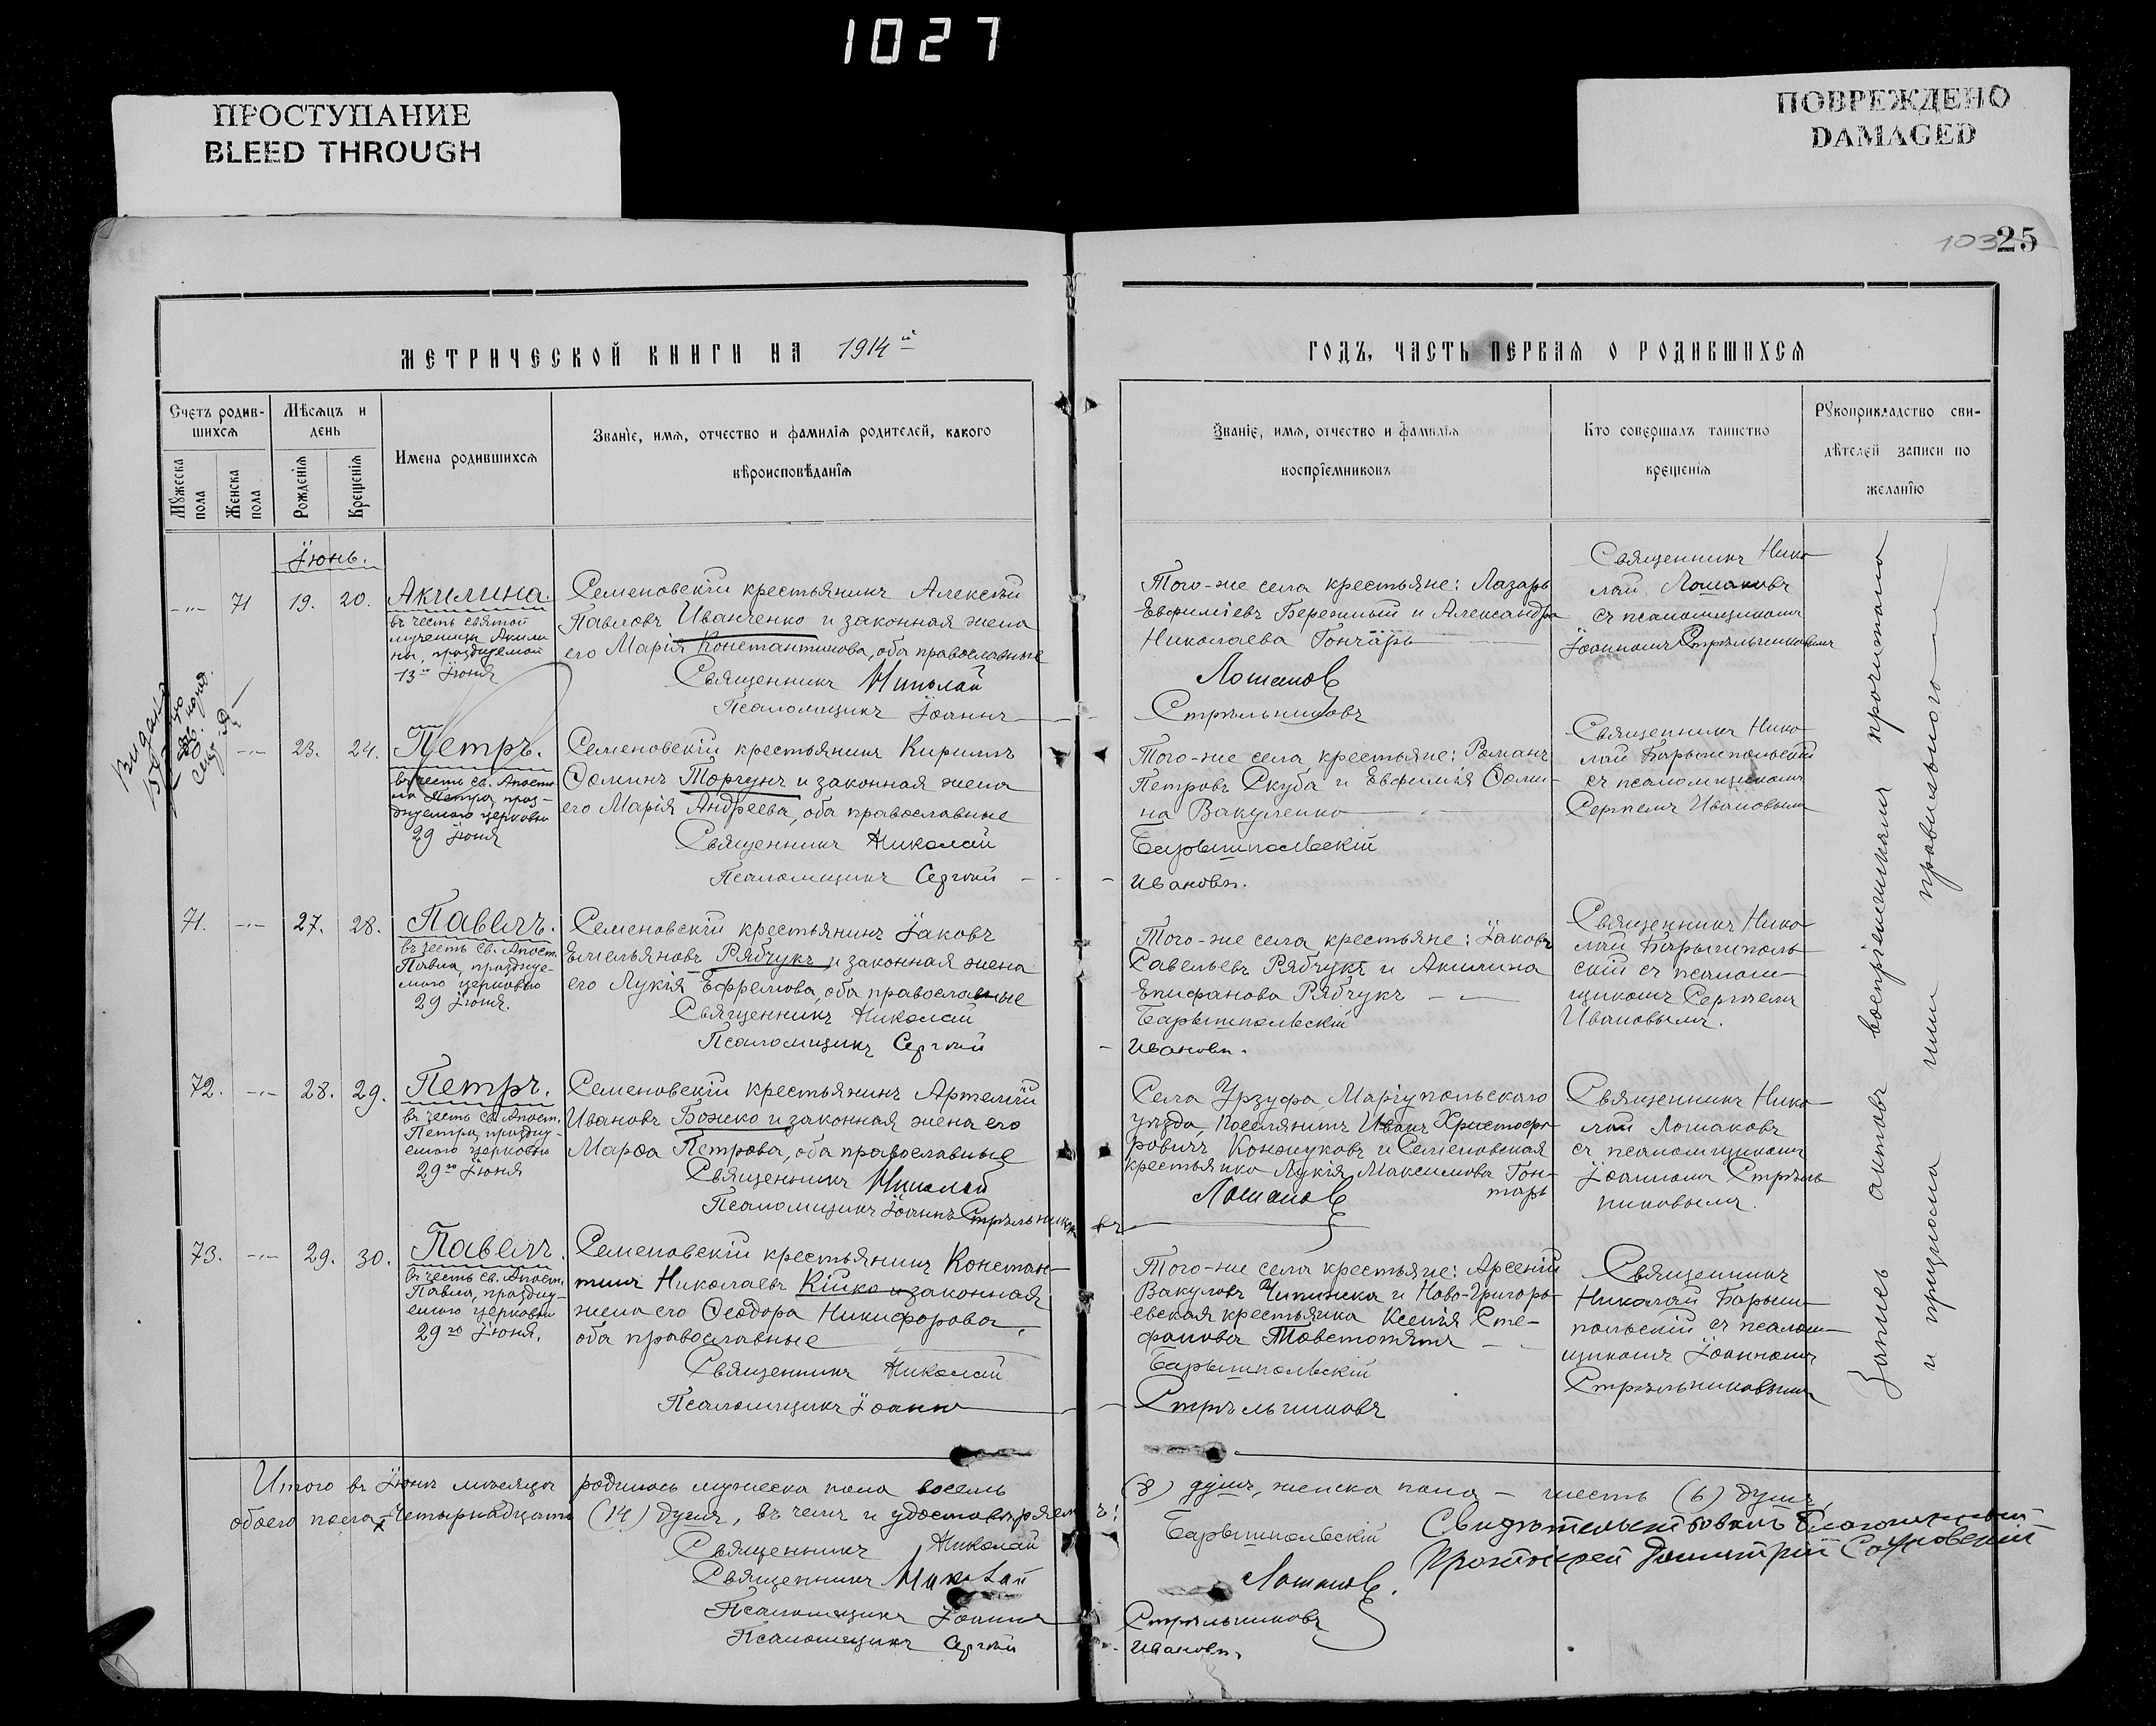 1027
ПРОСТУПАНИЕ
BLEED THROUGH
ПОВРЕЖДЕНО
DAMAGED
103
25
МЕТРИЧЕСКОЙ КНИГИ НА 1914й
ГОДЪ, ЧАСТЬ ПЕРВАЯ О РОДИВШИХСЯ
Счетъ родив-
шихся
Мужеска
пола
Женска
пола
Мѣсяцъ и
день
Рожденія
Крещенія
Имена родившихся
Званіе, имя, отчество и фамилія родителей, какого
вѣроисповѣданія
Званіе, имя, отчество и фамилія
воспріемниковъ
Кто совершалъ таинство
крещенія
Рукоприкладство сви-
дѣтелей записи по
желанію
Іюнь.
-"- 71 19. 20.
Акилина.
въ честь святой
мученицы Акили
ны, празднуемой
13го Іюня
Семеновскій крестьянинъ Алексѣй
Павловъ Иванченко и законная жена
его Марія Константинова, оба православные
Священникъ Николай
Псаломщикъ Іоаннъ
Того-же села крестьяне: Лазарь
Евфиміевъ Бережный и Александра
Николаева Гончаръ
Лошаковъ
Стрѣльниковъ
Священникъ Нико
лай Лошаковъ
съ псаломщикомъ
Іоанномъ Стрѣльниковымъ
-"- 23. 24.
Петръ.
въ честь св. Апосто
ла Петра, праз-
днуемаго церковью
29 Іюня
Семеновскій крестьянинъ Кириллъ
Ѳоминъ Торгунъ и законная жена
его Марія Андреева, оба православные
Священникъ Николай
Псаломщикъ Сергѣй
Того-же села крестьяне: Романъ
Петровъ Скуба и Евфимія Ѳоми-
на Вакуленко
Барышпольскій
Ивановъ.
Священникъ Нико
лай Барышпольскій
съ псаломщикомъ
Сергѣемъ Ивановымъ
71. -"- 27. 28.
Павелъ.
въ честь св. Апост.
Павла, празднуе-
маго церковью
29 Іюня.
Семеновскій крестьянинъ Іаковъ
Емельяновъ Рябчукъ и законная жена
его Лукія Ефремова, оба православные
Священникъ Николай
Псаломщикъ Сергѣй
Того-же села крестьяне: Іаковъ
Савельевъ Рябчукъ и Акилина
Епифанова Рябчукъ
Барышпольскій
Ивановъ.
Священникъ Нико
лай Барышполь
скій съ псалом-
щикомъ Сергѣемъ
Ивановымъ.
72. -"- 28. 29.
Петръ.
въ честь св. Апост.
Петра, праздну-
емаго церковью
29го Іюня
Семеновскій крестьянинъ Артемій
Ивановъ Божко и законная жена его
Марѳа Петрова, оба православные
Священникъ Николай
Псаломщикъ Іоаннъ Стрѣльниковъ
Села Урзуфа, Маріупольскаго
уѣзда, поселянинъ Иванъ Христофо-
ровичъ Конжуковъ и Семеновская
крестьянка Лукія Максимова Гон-
таръ
Лошаковъ
Священникъ Нико
лай Лошаковъ
съ псаломщикомъ
Іоанномъ Стрѣль
никовымъ.
73. -"- 29. 30.
Павелъ.
въ честь св. Апост.
Павла, праздну-
емаго церковью
29го Іюня.
Семеновскій крестьянинъ Констан-
тинъ Николаевъ Кійко и законная
жена его Ѳеодора Никифорова,
оба православные
Священникъ Николай
Псаломщикъ Іоаннъ
Того-же села крестьяне: Арсеній
Вакуловъ и Ново-Григорь-
евская крестьянка Ксенія Сте-
фанова
Барышпольскій
Стрѣльниковъ
Священникъ
Николай Барыш-
польскій съ псалом-
щикомъ Іоанномъ
Стрѣльниковымъ
Запись актовъ воспріемникамъ прочитана
и признана ими правильною
Итого въ Іюнѣ мѣсяцѣ родилось мужеска пола восемь (8) душъ, женска пола - шесть (6) душъ,
обоего пола - четырнадцать (14) душъ, въ чемъ и удостовѣряемъ:
Священникъ Николай Барышпольскій
Священникъ Николай Лошаковъ.
Псаломщикъ Іоаннъ Стрѣльниковъ
Псаломщикъ Сергѣй Ивановъ.
Свидѣтельствовалъ Благочинный
Протоіерей Димитрій